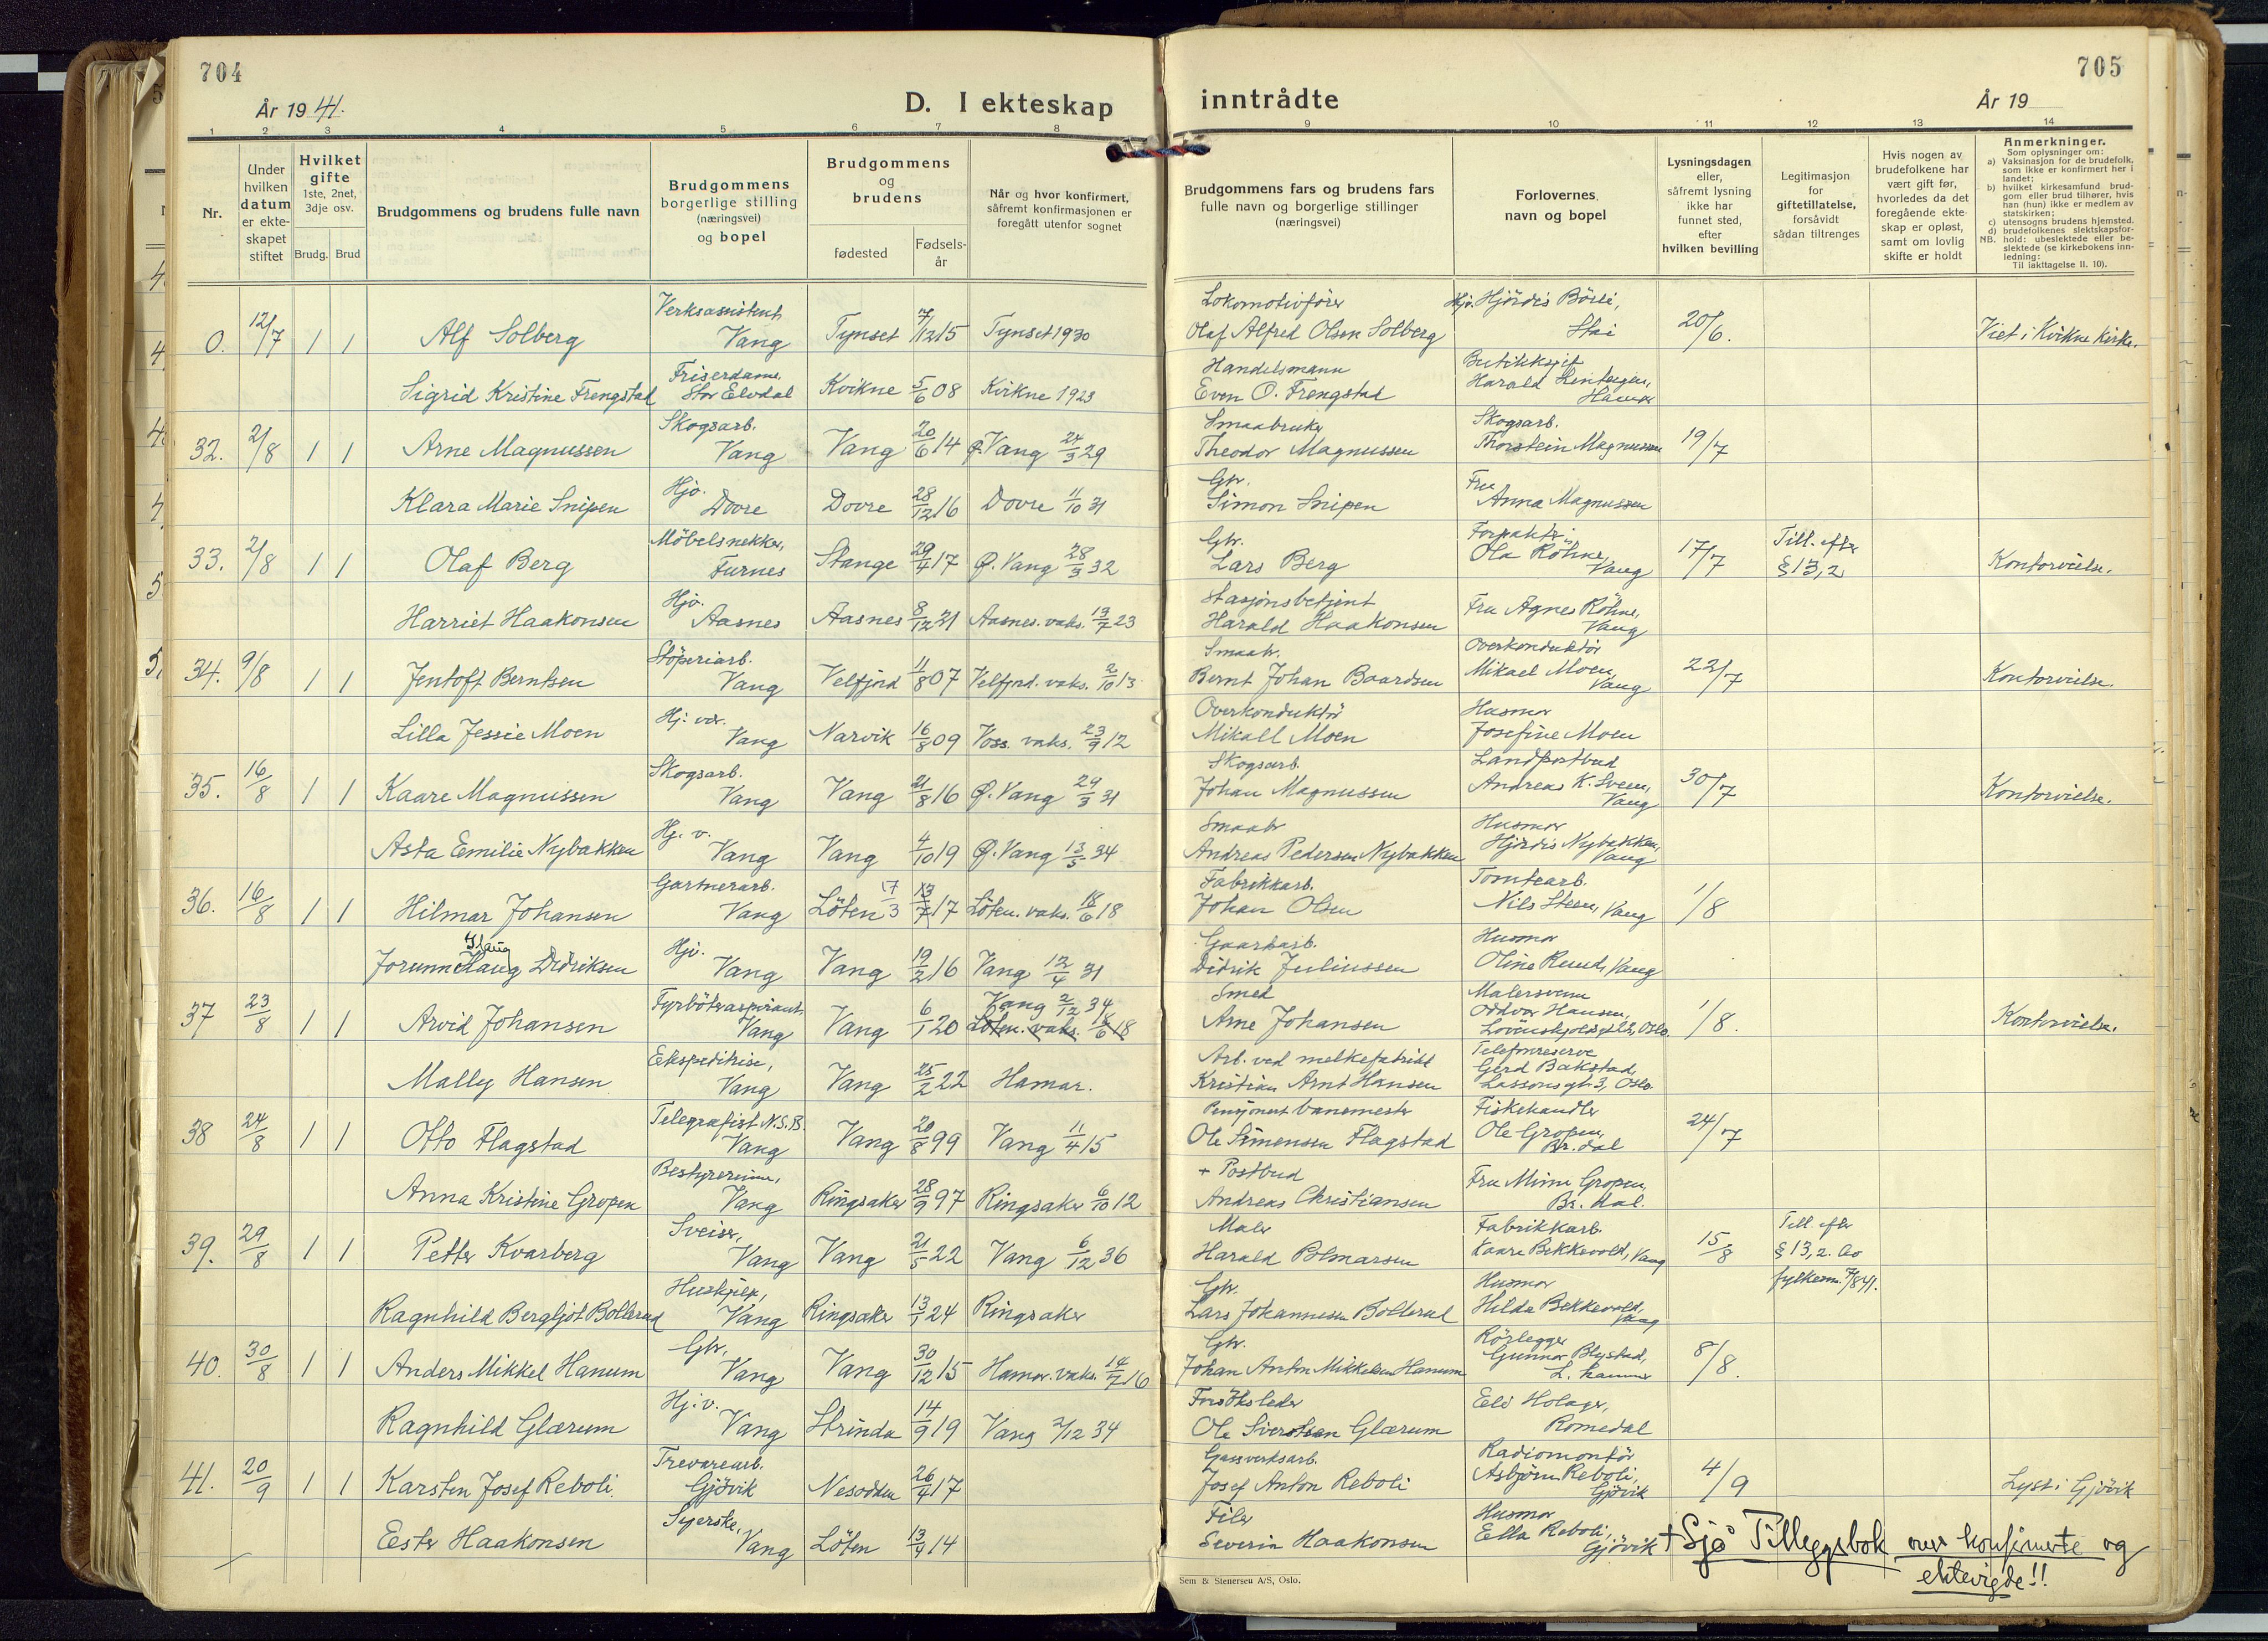 704
År 1941.
D. I ekteskap
inntrådte
År 19
705
1 2 3 4 5 6 7 8 9 10 11 12 13 14
Nr.
Under hvilken datum er ekteskapet stiftet
Hvilket gifte 1ste, 2net, 3dje osv.
Brudg. Brud
Brudgommens og brudens fulle navn
Brudgommens borgerlige stilling (næringsvei) og bopel
Brudgommens og brudens
fødested
Fødselsår
Når og hvor konfirmert, såfremt konfirmasjonen er foregått utenfor sognet
Brudgommens fars og brudens fars fulle navn og borgerlige stillinger (næringsvei)
Forlovernes navn og bopel
Lysningsdagen eller, såfremt lysning ikke har funnet sted, efter hvilken bevilling
Legitimasjon for giftetillatelse, forsåvidt sådan tiltrenges
Hvis nogen av brudefolkene har vært gift før, hvorledes da det foregående ekteskap er opløst, samt om lovlig skifte er holdt
Anmerkninger.
Som oplysninger om:
a) Vaksinasjon for de brudefolk, som ikke er konfirmert her i landet;
b) hvilket kirkesamfund brudgom eller brud tilhører, hvis han (hun) ikke er medlem av statskirken;
c) utensogns brudens hjemsted.
d) brudefolkenes slektskapsforhold: ubeslektede eller beslektede (se kirkebokens innledning:
NB.
Til iakttagelse II. 10).
0. 12/7 1 1 Alf Solberg Verksassistent Vang Tynset 7/12 15 Tynset 1930 Lokomotivfører Olaf Alfred Olsen Solberg Hjv. Hjördis Börli, Stai 20/6. Viet i Kvikne Kirke.
Sigrid Kristine Frengstad Friserdame, Stor Elvdal Kvikne 5/6 08 Kvikne 1923 Handelsmann Even O. Frengstad Harald
32. 2/8 1 1 Arne Magnussen Skogsarb. Vang Vang 20/6 14 Ø. Vang 24/3 29 Smaabruker Theodor Magnussen Skogsarb. Thorstein Magnussen 19/7
Klara Marie Snipen Hjv. Dovre Dovre 28/12 16 Dovre 11/10 31 Gbr. Simon Snipen Fru Anna Magnussen
33. 2/8 1 1 Olaf Berg Möbelsnekker, Furnes Stange 29/4 17 Ø. Vang 28/3 32 Gbr. Lars Berg Forpakter Ola Röhne, Vang 17/7 Till. efter § 13,2 Kontorvielse.
Harriet Haakonsen Hjv. Aasnes Aasnes 8/12 21 Aasnes. vaks. 13/7 23 Stasjonsbetjent Harald Haakonsen Fru Agnes Röhne, Vang
34. 9/8 1 1 Jentoft Berntsen Stöperiarb. Vang Velfjord 11/8 07 Velfjord. vaks. 2/10 13 Smaabr. Bernt Johan Baardsen Overkonduktör Mikael Moen, Vang 22/7 Kontorvielse.
Lilla Jessie Moen Hj. vær. Vang Narvik 16/8 09 Voss. vaks. 23/9 12 Overkonduktör Mikael Moen Husmor Josefine Moen
35. 16/8 1 1 Kaare Magnussen Skogsarb. Vang Vang 21/8 16 Ø. Vang 29/3 31 Skogsarb. Johan Magnussen Landpostbud Andreas K. Sveen, Vang 30/7 Kontorvielse.
Asta Emilie Nybakken Hj. v. Vang Vang 4/10 19 Ø. Vang 13/5 34 Smaabr Andreas Pedersen Nybakken Husmor Hjördis Nybakken, Vang
36. 16/8 1 1 Hilmar Johansen Gartnerarb. Vang Löten 17/3 17 Löten. vaks. 18/6 18 Fabrikkarb. Johan Olsen Tomtearb. Nils Steen, Vang 1/8
Jorunn Haug Haug Didriksen Hjv. Vang Vang 19/2 16 Vang 12/4 31 Gaardsarb. Didrik Juliussen Husmor Oline Ruud, Vang
37 23/8 1 1 Arvid Johansen Fyrböteraspirant, Vang Vang 6/1 20 Vang 2/12 34 Löten. vaks. 18/6 18 Smed Arne Johansen Malersvenn Oddvar Hansen, Oslo. 1/8. Kontorvielse.
Mally Hansen Ekspeditrise, Vang Vang 25/2 22 Hamar. Arb. ved melkefabrikk Kristian Arnt Hansen Telefonreserve Gerd Bakstad, Lassonsgt. 3, Oslo.
38 24/8 1 1 Otto Flagstad Telegrafist N.S.B. Vang Vang 20/8 99 Vang 11/4 15 Pensjonert banemester Ole Simensen Flagstad Fiskehandler Ole Gropen, Br. dal 24/7
Anna Kristine Gropen Bestyrerinne, Vang Ringsaker 28/9 97 Ringsaker 6/10 12 + Postbud Andreas Christiansen Fru Mimi Gropen, Br. dal.
39. 29/8 1 1 Petter Kvarberg Sveiser, Vang Vang 21/5 22 Vang 6/12 36 Maler Harald Fabrikkarb. Kaare Bekkevold, Vang 15/8 Till. efter § 13,2. av fylkesm. 7/8 41.
Ragnhild Bergljot Bollerud Hushjelp, Vang Ringsaker 13/1 24 Ringsaker Gbr. Lars Johannesen Bollerud Husmor Hilda Bekkevold, Vang
40. 30/8 1 1 Anders Mikkel Hanum Gbr, Vang Vang 30/12 15 Hamar. vaks. 14/7 16 Gbr. Johan Anton Mikkelsen Hanum Rörlegger Gunnar Blystad, L. hammer 8/8.
Ragnhild Glærum Hj. v. Vang Strinda 14/9 19 Vang 2/12 34 Forsöksleder Ole Sivertsen Glærum Eli Holager, Romedal
41. 20/9 1 1 Karsten Josef Reboli Trevarearb. Gjövik Nesodden 26/4 17 Gassverksarb. Josef Anton Reboli Radiomontör Asbjörn Reboli, Gjövik 4/9 Lyst i Gjövik
Ester Haakonsen Syerske, Vang Löten 13/4 14 Filer Severin Haakonsen Husmor Ella Reboli, Gjövik
+ Sjå Tilleggsbok over konfirmerte og
ektevigde!!
Sem & Stenersen A/S, Oslo.